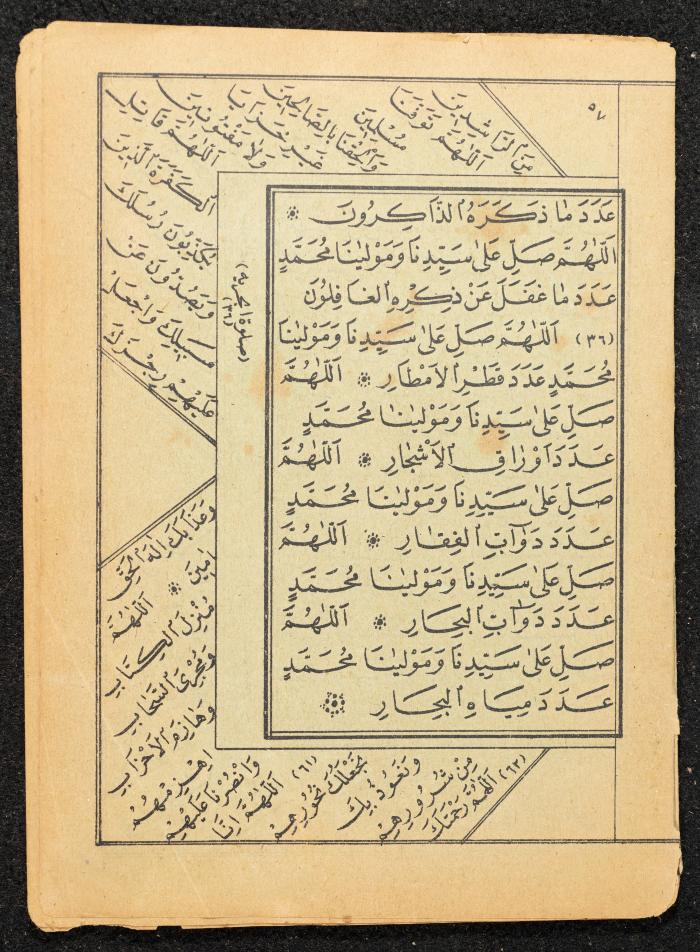 ٥٧
عَدَدَ مَا ذَكَرَهُ الذَّاكِرُونَ
اَللّٰهُمَّ صَلِّ عَلٰى سَيِّدِنَا وَمَوْلٰينَا مُحَمَّدٍ
عَدَدَ مَا غَفَلَ عَنْ ذِكْرِهِ الغَافِلُونَ
(٣٦) اَللّٰهُمَّ صَلِّ عَلٰى سَيِّدِنَا وَمَوْلٰينَا
مُحَمَّدٍ عَدَدَ قَطْرِ الْاَمْطَارِ اَللّٰهُمَّ
صَلِّ عَلٰى سَيِّدِنَا وَمَوْلٰينَا مُحَمَّدٍ
عَدَدَ اَوْرَاقِ الْاَشْجَارِ اَللّٰهُمَّ
صَلِّ عَلٰى سَيِّدِنَا وَمَوْلٰينَا مُحَمَّدٍ
عَدَدَ دَوَآبِّ الْقِفَارِ اَللّٰهُمَّ
صَلِّ عَلٰى سَيِّدِنَا وَمَوْلٰينَا مُحَمَّدٍ
عَدَدَ دَوَآبِّ الْبِحَارِ اَللّٰهُمَّ
صَلِّ عَلٰى سَيِّدِنَا وَمَوْلٰينَا مُحَمَّدٍ
عَدَدَ مِيَاهِ الْبِحَارِ
(٣٦)
مِنَ الرَّاشِدِينَ
اَللّٰهُمَّ تَوَفَّنَا
مُسْلِمِينَ
وَاَلْحِقْنَا بِالصَّالِحِينَ
غَيْرَ خَزَايَا
وَلَا مَفْتُونِينَ
اَللّٰهُمَّ قَاتِلِ
الْكَفَرَةَ الَّذِينَ
يُكَذِّبُونَ رُسُلَكَ
وَيَصُدُّونَ عَنْ
سَبِيلِكَ وَاجْعَلْ
عَلَيْهِمْ رِجْزَكَ
وَعَذَابَكَ اِلٰهَ الْحَقِّ
اٰمِينَ اَللّٰهُمَّ
مُنْزِلَ الْكِتَابِ
وَمُجْرِىَ السَّحَابِ
وَهَازِمَ الْاَحْزَابِ
اِهْزِمْهُمْ
وَانْصُرْنَا عَلَيْهِمْ
(٦١) اَللّٰهُمَّ اِنَّا
نَجْعَلُكَ فِى نُحُورِهِمْ
وَنَعُوذُ بِكَ
مِنْ شُرُورِهِمْ
(٦٢) اَللّٰهُمَّ رَحْمَتَكَ